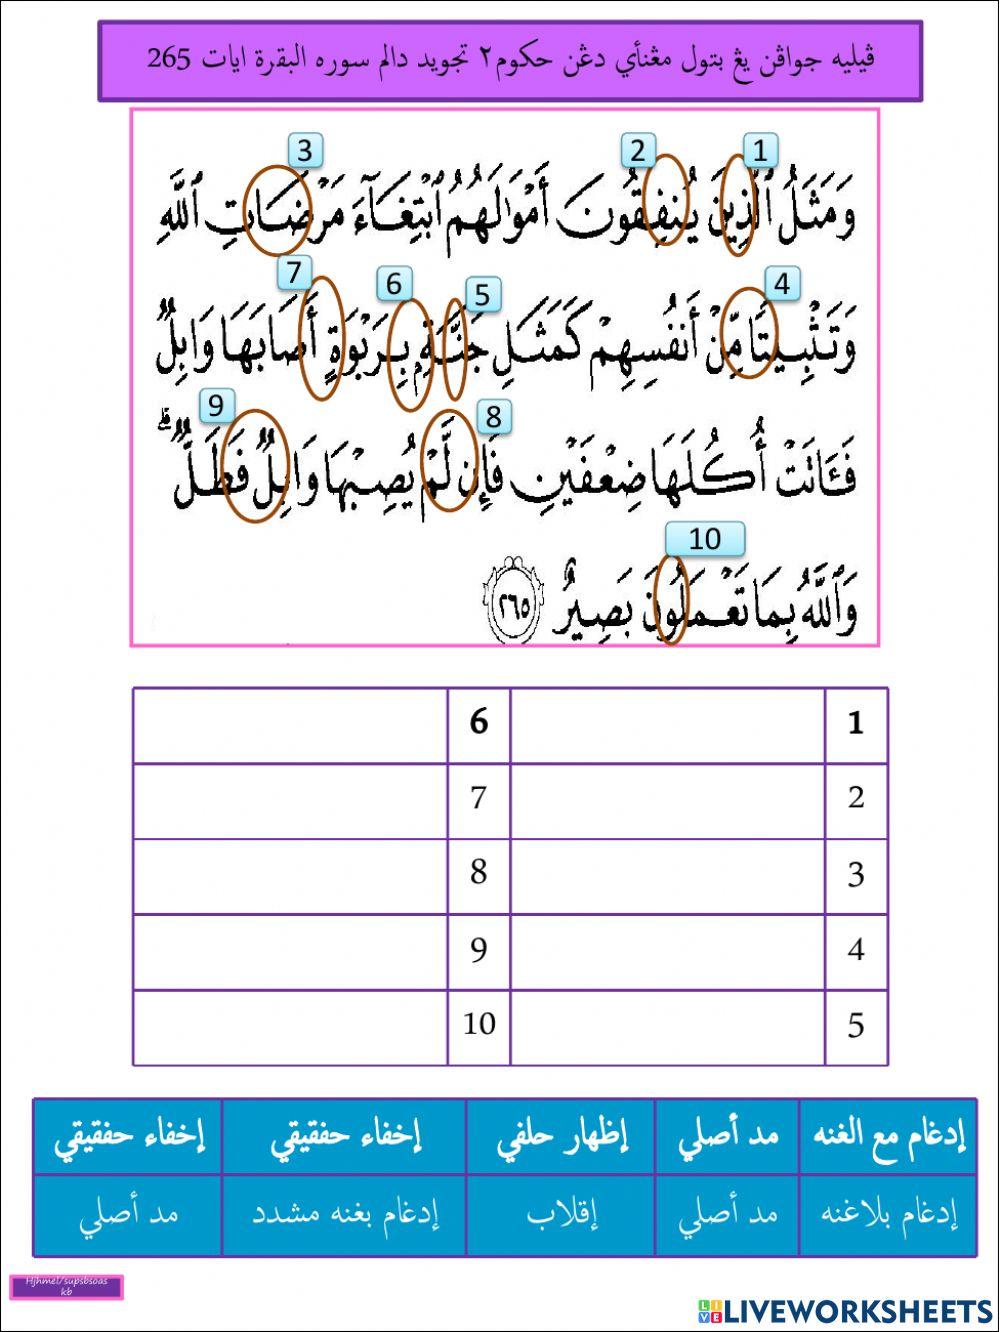 ڤيليه جواڤن يڠ بتول مڠنأي دڠن حكوم٢ تجويد دالم سوره البقرة ايات 265
3 2 1
وَمَثَلُ ٱلَّذِينَ يُنفِقُونَ أَمْوَٰلَهُمُ ٱبْتِغَآءَ مَرْضَاتِ ٱللَّهِ
7 6 5 4
وَتَثْبِيتًا مِّنْ أَنفُسِهِمْ كَمَثَلِ جَنَّةٍۭ بِرَبْوَةٍ أَصَابَهَا وَابِلٌ
9 8
فَـَٔاتَتْ أُكُلَهَا ضِعْفَيْنِ فَإِن لَّمْ يُصِبْهَا وَابِلٌ فَطَلٌّ ۗ
10
وَٱللَّهُ بِمَا تَعْمَلُونَ بَصِيرٌ ٢٦٥
1 6
2 7
3 8
4 9
5 10
إدغام مع الغنه مد أصلي إظهار حلقي إخفاء حفقيقي إخفاء حفقيقي
إدغام بلاغنه مد أصلي إقلاب إدغام بغنه مشدد مد أصلي
Hjhmel/supsbsoas
kb
LIVEWORKSHEETS